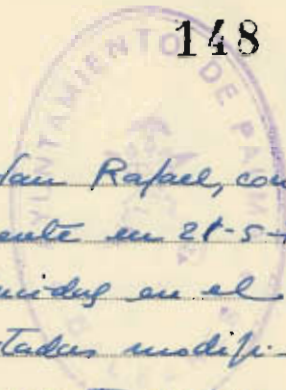 148
AYUNTAMIENTO DE PA
San Rafael, con
ente en 21-5-
nidas en el
tadas modifi-